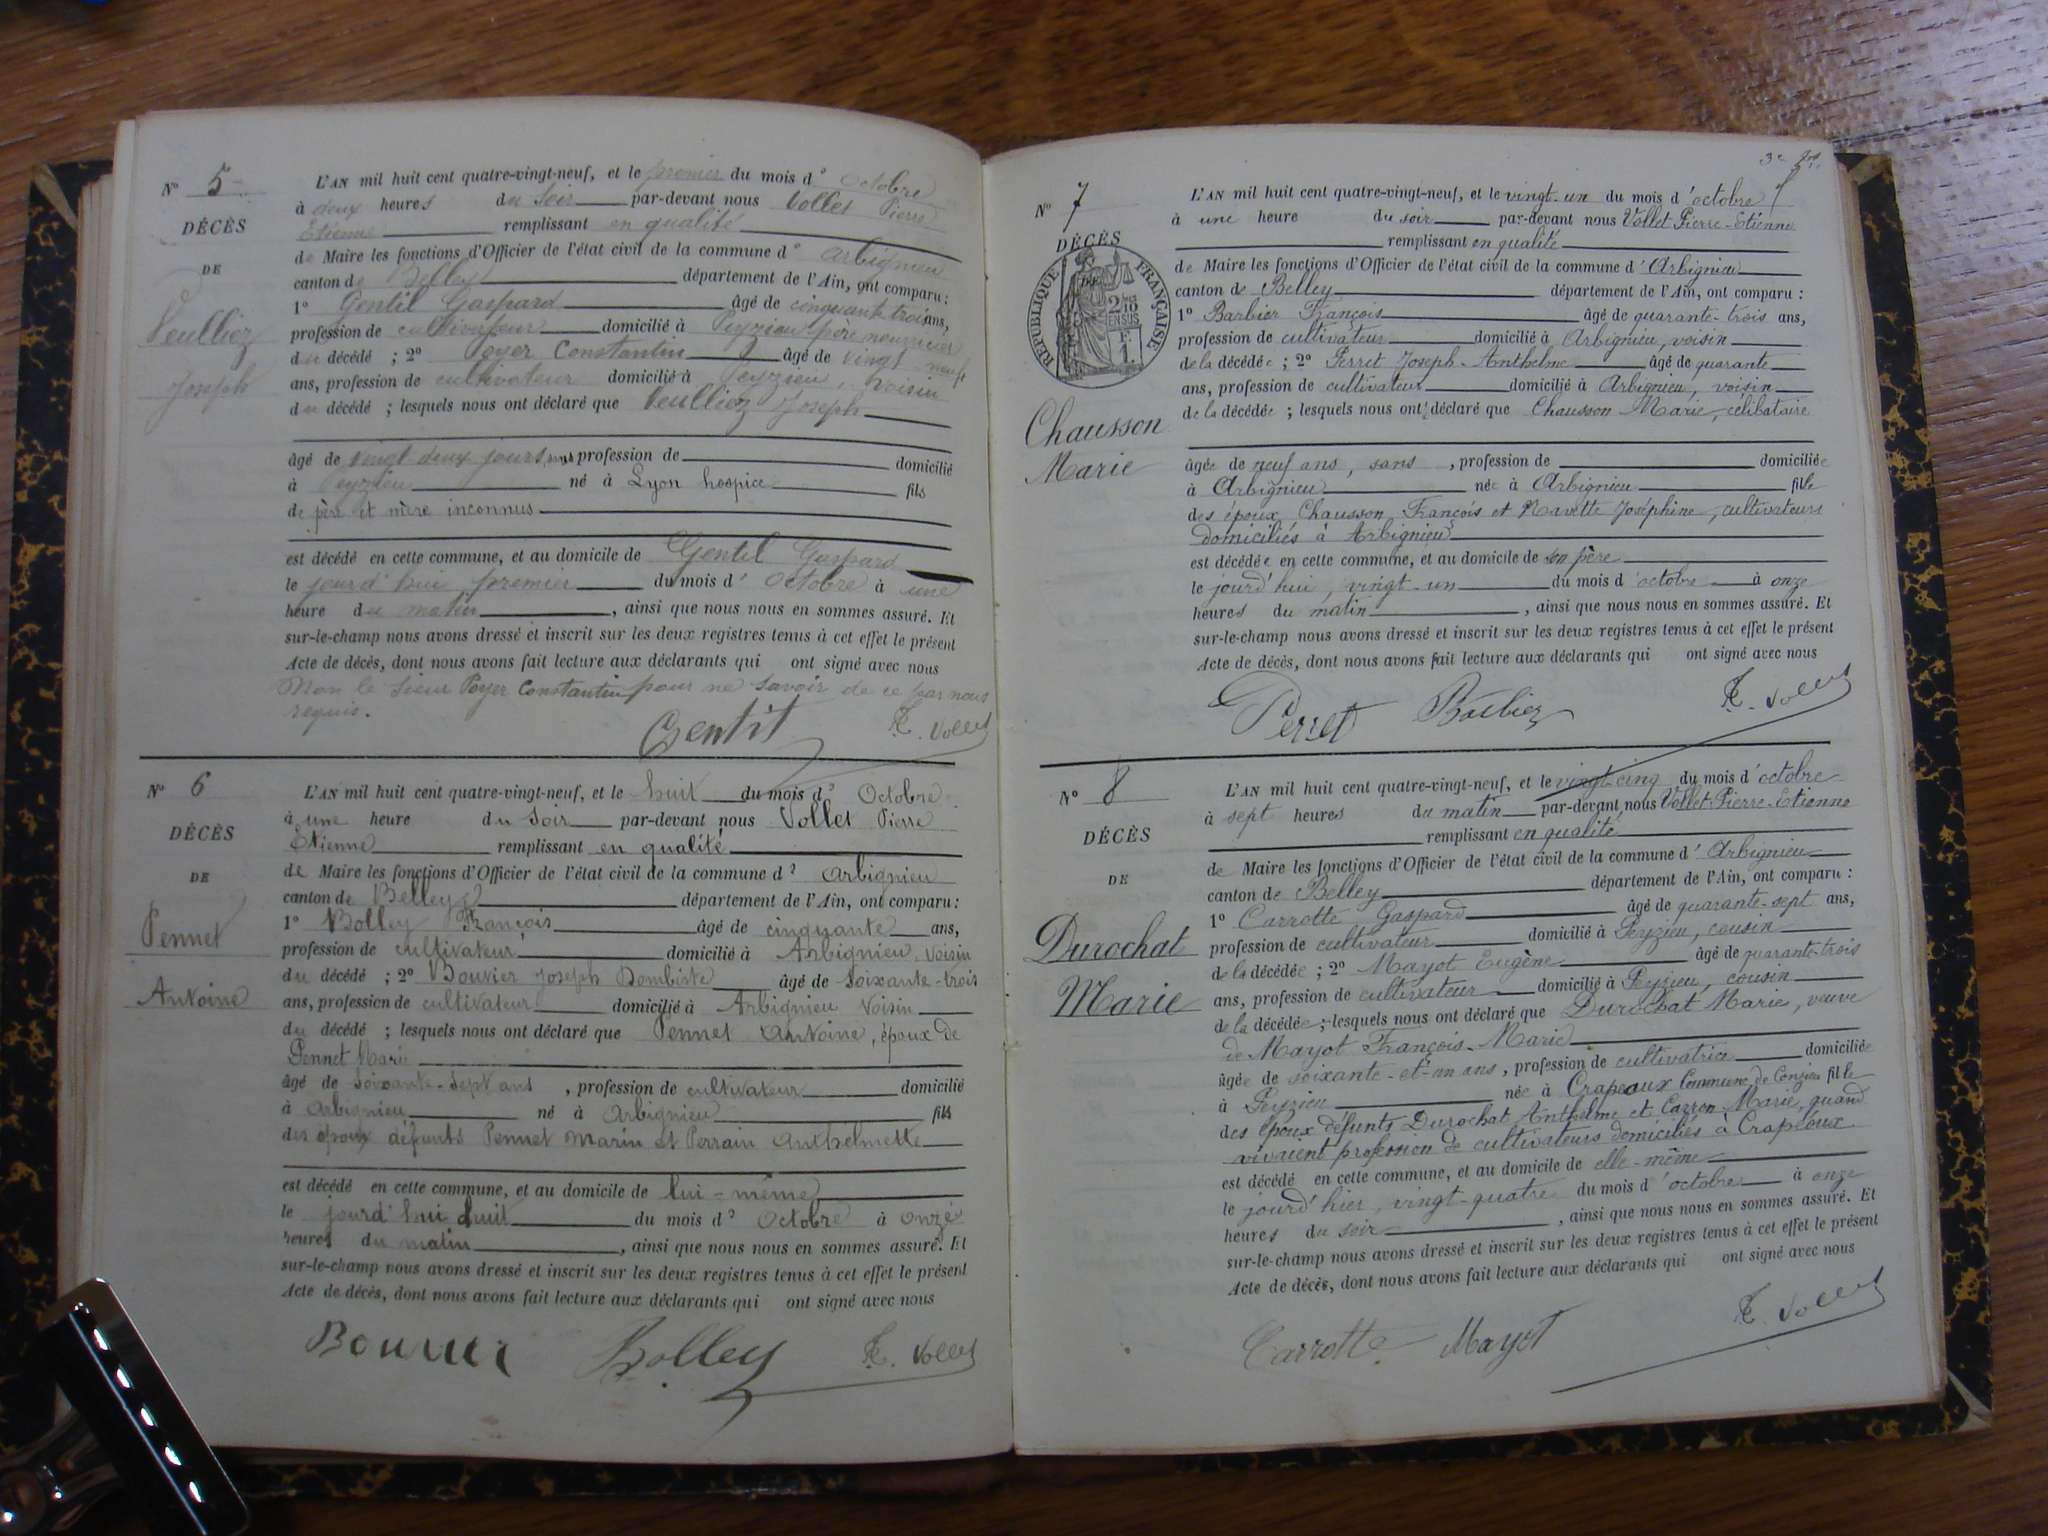 N° 5
DÉCÈS
DE
Veulliez
Joseph
L'AN mil huit cent quatre-vingt-neuf, et le premier du mois d' octobre
à deux heures du soir par-devant nous Vollet Pierre
Etienne remplissant en qualité
de Maire les fonctions d'Officier de l'état civil de la commune d' Arbignieu
canton de Belley département de l'Ain, ont comparu :
1° Gentil Gaspard âgé de cinquante trois ans,
profession de cultivateur domicilié à Peyzieu, père nourricier
du décédé ; 2° Poyer Constantin âgé de vingt-neuf
ans, profession de cultivateur domicilié à Peyzieu, voisin
du décédé ; lesquels nous ont déclaré que Veulliez Joseph
âgé de vingt-deux jours, sans profession de domicilié
à Peyzieu né à Lyon hospice fils
de père et mère inconnus
est décédé en cette commune, et au domicile de Gentil Gaspard
le jourd'hui premier du mois d' octobre à une
heure du matin , ainsi que nous nous en sommes assuré. Et
sur-le-champ nous avons dressé et inscrit sur les deux registres tenus à cet effet le présent
Acte de décès, dont nous avons fait lecture aux déclarants qui ont signé avec nous
Non le sieur Poyer Constantin pour ne savoir de ce par nous
requis.
Gentil E. Vollet
N° 6
DÉCÈS
DE
Pennet
Antoine
L'AN mil huit cent quatre-vingt-neuf, et le huit du mois d' Octobre
à une heure du soir par-devant nous Vollet Pierre
Etienne remplissant en qualité
de Maire les fonctions d'Officier de l'état civil de la commune d' Arbignieu
canton de Belley département de l'Ain, ont comparu :
1° Bolley François âgé de cinquante ans,
profession de cultivateur domicilié à Arbignieu, voisin
du décédé ; 2° Bouvier Joseph Dombiste âgé de soixante-trois
ans, profession de cultivateur domicilié à Arbignieu voisin
du décédé ; lesquels nous ont déclaré que Pennet Antoine, époux de
Pennet Marie
âgé de soixante-sept ans , profession de cultivateur domicilié
à Arbignieu né à Arbignieu fils
des époux défunts Pennet Marin et Perrain Anthelmette
est décédé en cette commune, et au domicile de lui-même
le jourd'hui huit du mois d' Octobre à onze
heures du matin , ainsi que nous nous en sommes assuré. Et
sur-le-champ nous avons dressé et inscrit sur les deux registres tenus à cet effet le présent
Acte de décès, dont nous avons fait lecture aux déclarants qui ont signé avec nous
Bouvier Bolley E. Vollet
3e
N° 7
DÉCÈS
DE
RÉPUBLIQUE FRANÇAISE
2/10 EN SUS
F. 1.
Chausson
Marie
L'AN mil huit cent quatre-vingt-neuf, et le vingt-un du mois d'octobre
à une heure du soir par-devant nous Vollet Pierre-Etienne
remplissant en qualité
de Maire les fonctions d'Officier de l'état civil de la commune d' Arbignieu
canton de Belley département de l'Ain, ont comparu :
1° Barbier François âgé de quarante-trois ans,
profession de cultivateur domicilié à Arbignieu, voisin
de la décédée ; 2° Perret Joseph-Anthelme âgé de quarante
ans, profession de cultivateur domicilié à Arbignieu, voisin
de la décédée ; lesquels nous ont déclaré que Chausson Marie, célibataire
âgée de neuf ans, sans , profession de domiciliée
à Arbignieu née à Arbignieu fille
des époux Chausson François et Navette Joséphine, cultivateurs
domiciliés à Arbignieu
est décédée en cette commune, et au domicile de son père
le jourd'hui, vingt-un du mois d'octobre à onze
heures du matin , ainsi que nous nous en sommes assuré. Et
sur-le-champ nous avons dressé et inscrit sur les deux registres tenus à cet effet le présent
Acte de décès, dont nous avons fait lecture aux déclarants qui ont signé avec nous
Perret Barbier E. Vollet
N° 8
DÉCÈS
DE
Durochat
Marie
L'AN mil huit cent quatre-vingt-neuf, et le vingt-cinq du mois d'octobre
à sept heures du matin par-devant nous Vollet Pierre-Etienne
remplissant en qualité
de Maire les fonctions d'Officier de l'état civil de la commune d' Arbignieu
canton de Belley département de l'Ain, ont comparu :
1° Carrotte Gaspard âgé de quarante-sept ans,
profession de cultivateur domicilié à Peyzieu, cousin
de la décédée ; 2° Mayot Eugène âgé de quarante-trois
ans, profession de cultivateur domicilié à Peyzieu, cousin
de la décédée ; lesquels nous ont déclaré que Durochat Marie, veuve
de Mayot François-Marie
âgée de soixante-et-un ans, profession de cultivatrice domiciliée
à Peyzieu née à Crapeaux Commune de Conzieu fille
des époux défunts Durochat Anthelme et Carron Marie, quand
vivaient profession de cultivateurs domiciliés à Crapéoux
est décédé en cette commune, et au domicile de elle-même
le jourd'hier, vingt-quatre du mois d'octobre à onze
heures du soir , ainsi que nous nous en sommes assuré. Et
sur-le-champ nous avons dressé et inscrit sur les deux registres tenus à cet effet le présent
Acte de décès, dont nous avons fait lecture aux déclarants qui ont signé avec nous
Carrotte Mayot E. Vollet